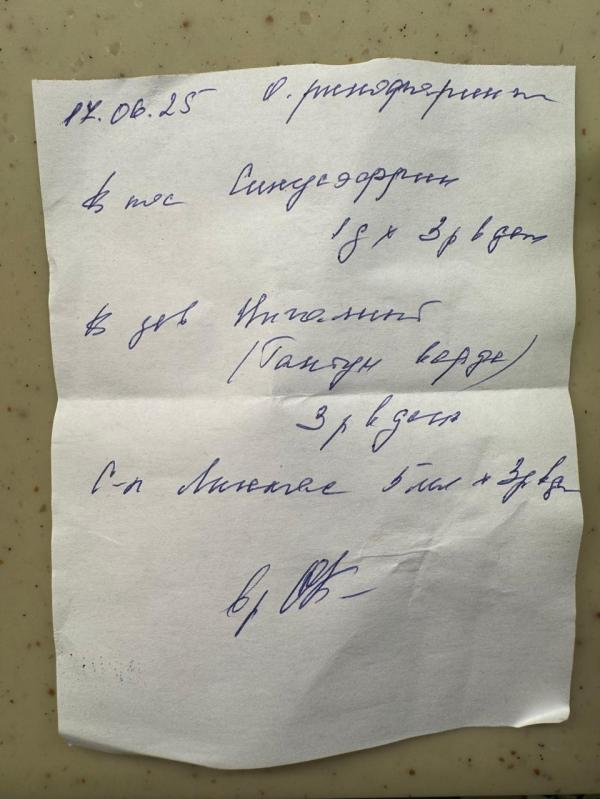 17.06.25 О. ринофарингит
В нос Синусэфрин
1д х 3 р в день
В зев Ингалипт
(Тантум верде)
3 р в день
С-п Линкас 5 мл х 3 р в д
вр